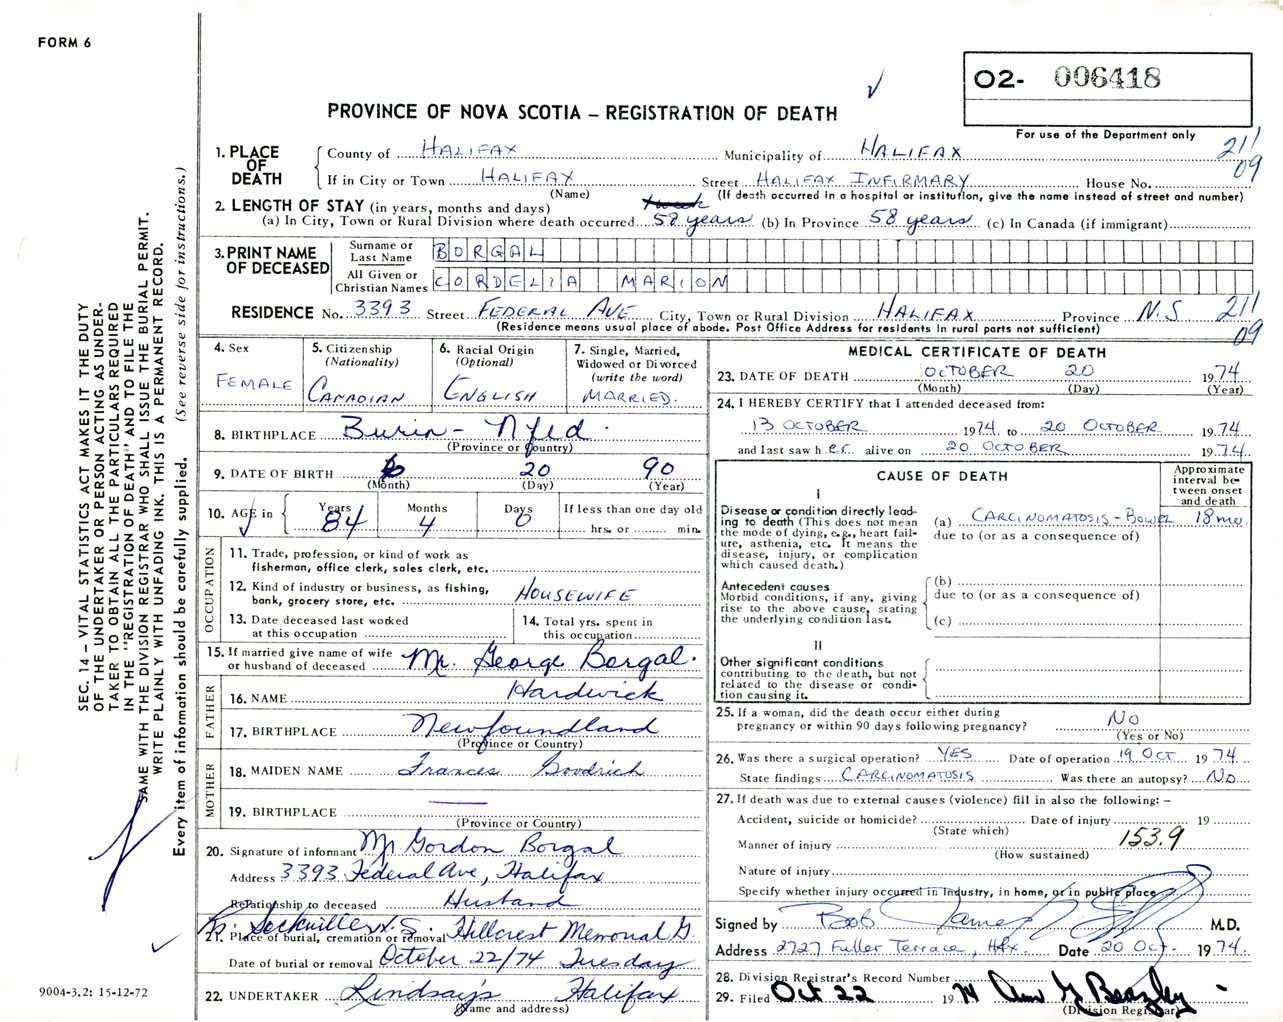 FORM 6
O2- 006418
PROVINCE OF NOVA SCOTIA – REGISTRATION OF DEATH
For use of the Department only
1. PLACE OF DEATH
County of HALIFAX Municipality of HALIFAX 211
If in City or Town HALIFAX Street HALIFAX INFIRMARY House No. 09
(Name) (If death occurred in a hospital or institution, give the name instead of street and number)
2. LENGTH OF STAY (in years, months and days)
(a) In City, Town or Rural Division where death occurred 58 years (b) In Province 58 years (c) In Canada (if immigrant)
3. PRINT NAME OF DECEASED
Surname or Last Name BORGAL
All Given or Christian Names CORDELIA MARION
RESIDENCE No. 3393 Street FEDERAL AVE City, Town or Rural Division HALIFAX Province N.S 211
(Residence means usual place of abode. Post Office Address for residents in rural parts not sufficient) 09
4. Sex
FEMALE
5. Citizenship
(Nationality)
CANADIAN
6. Racial Origin
(Optional)
ENGLISH
7. Single, Married,
Widowed or Divorced
(write the word)
MARRIED.
8. BIRTHPLACE Burin - Nfld.
(Province or Country)
9. DATE OF BIRTH 20 90
(Month) (Day) (Year)
10. AGE in Years 84 Months 4 Days 0
If less than one day old
hrs. or min.
OCCUPATION
11. Trade, profession, or kind of work as
fisherman, office clerk, sales clerk, etc.
12. Kind of industry or business, as fishing,
bank, grocery store, etc. HOUSEWIFE
13. Date deceased last worked
at this occupation
14. Total yrs. spent in
this occupation
15. If married give name of wife
or husband of deceased Mr. George Borgal.
FATHER
16. NAME Hardwick
17. BIRTHPLACE Newfoundland
(Province or Country)
MOTHER
18. MAIDEN NAME Frances Goodrich
19. BIRTHPLACE
(Province or Country)
20. Signature of informant Mr Gordon Borgal
Address 3393 Federal Ave, Halifax
Relationship to deceased Husband
Sackville N.S.
21. Place of burial, cremation or removal Hillcrest Memorial G.
Date of burial or removal October 22/74 Tuesday
22. UNDERTAKER Lindsay's Halifax
(Name and address)
MEDICAL CERTIFICATE OF DEATH
23. DATE OF DEATH OCTOBER 20 1974
(Month) (Day) (Year)
24. I HEREBY CERTIFY that I attended deceased from:
13 OCTOBER 1974 to 20 OCTOBER 1974
and last saw h er alive on 20 OCTOBER 1974
CAUSE OF DEATH
Approximate
interval be-
tween onset
and death
I
Disease or condition directly lead-
ing to death (This does not mean
the mode of dying, e.g., heart fail-
ure, asthenia, etc. It means the
disease, injury, or complication
which caused death.)
(a) CARCINOMATOSIS - BOWEL 18 mo.
due to (or as a consequence of)
Antecedent causes
Morbid conditions, if any, giving
rise to the above cause, stating
the underlying condition last.
(b)
due to (or as a consequence of)
(c)
II
Other significant conditions
contributing to the death, but not
related to the disease or condi-
tion causing it.
25. If a woman, did the death occur either during
pregnancy or within 90 days following pregnancy? NO
(Yes or No)
26. Was there a surgical operation? YES Date of operation 19 OCT 1974
State findings CARCINOMATOSIS Was there an autopsy? NO
27. If death was due to external causes (violence) fill in also the following: –
Accident, suicide or homicide? Date of injury 19
(State which) 153.9
Manner of injury
(How sustained)
Nature of injury
Specify whether injury occurred in Industry, in home, or in public place
Signed by Bob James M.D.
Address 2727 Fuller Terrace, Hfx. Date 20 Oct. 1974.
28. Division Registrar's Record Number
29. Filed Oct 22 1974 Ann G Beazley
(Division Registrar)
SEC. 14 – VITAL STATISTICS ACT MAKES IT THE DUTY
OF THE UNDERTAKER OR PERSON ACTING AS UNDER-
TAKER TO OBTAIN ALL THE PARTICULARS REQUIRED
IN THE "REGISTRATION OF DEATH" AND TO FILE THE
SAME WITH THE DIVISION REGISTRAR WHO SHALL ISSUE THE BURIAL PERMIT.
WRITE PLAINLY WITH UNFADING INK. THIS IS A PERMANENT RECORD.
Every item of information should be carefully supplied. (See reverse side for instructions.)
9004-3.2: 15-12-72